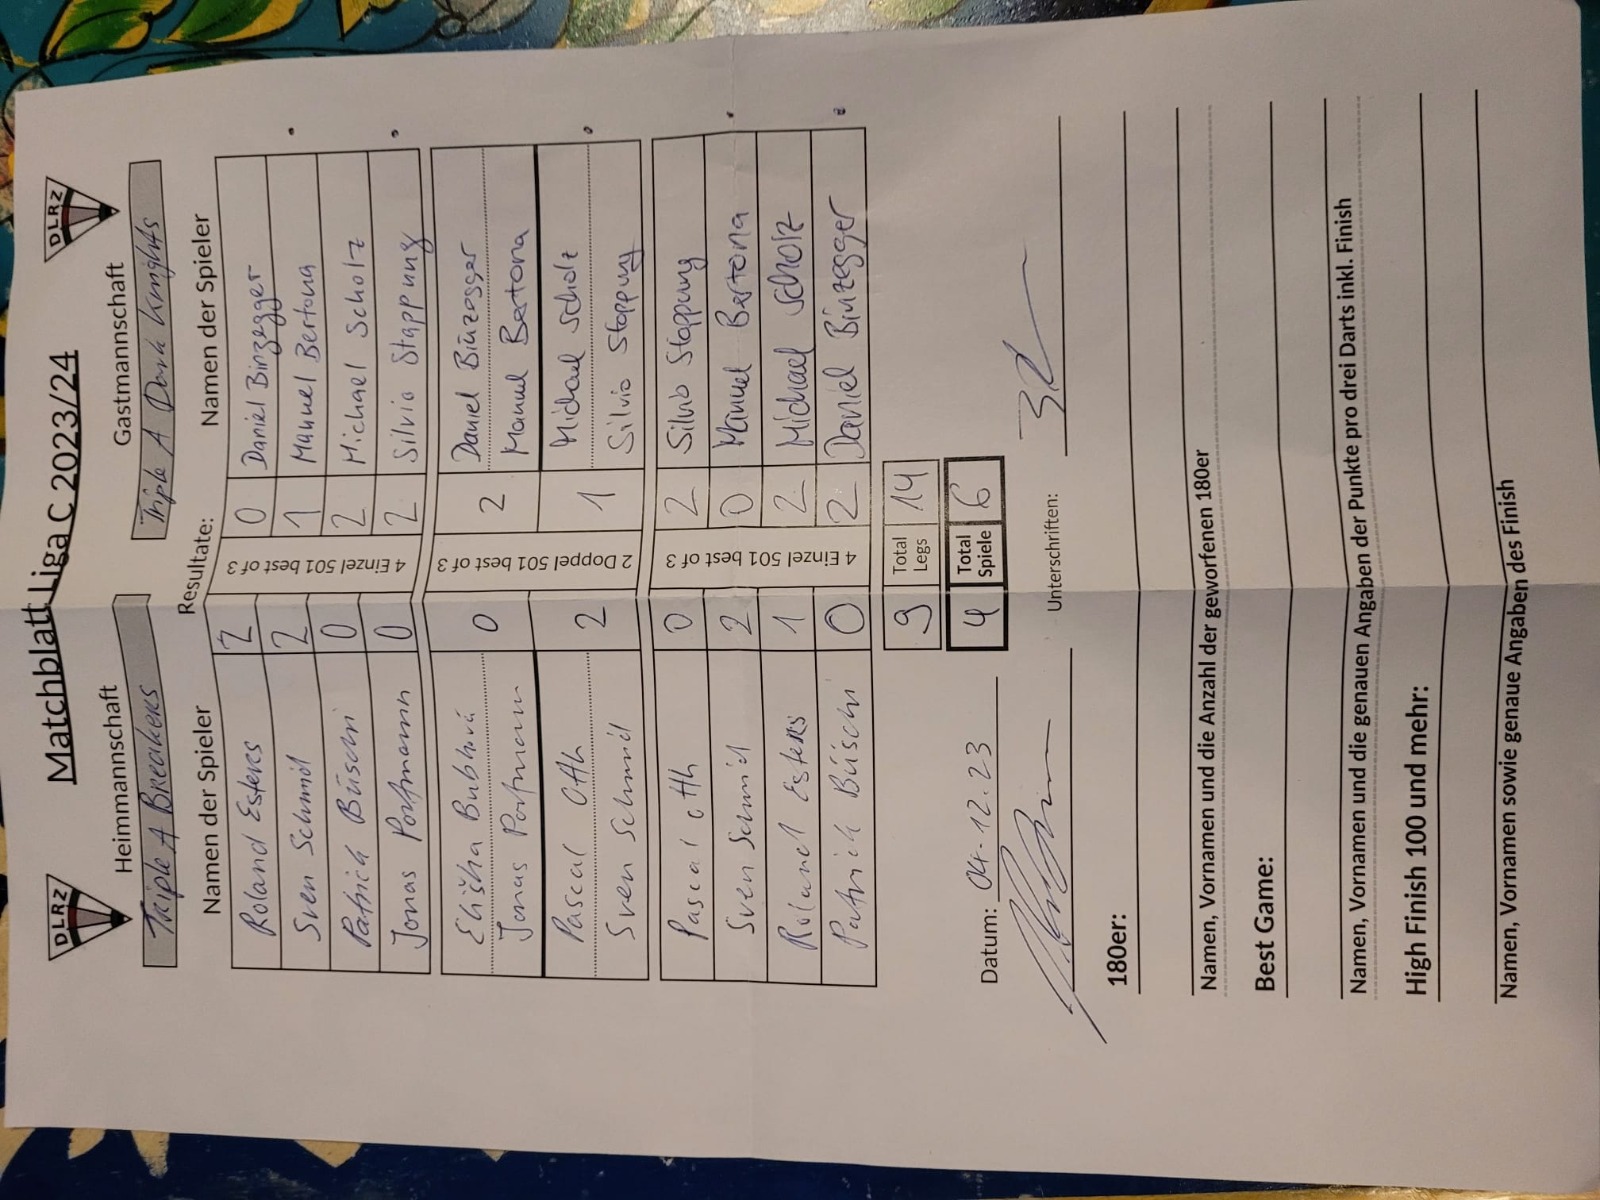 Matchblatt Liga C 2023/24
DLRZ
DLRZ
Heimmannschaft Gastmannschaft
Triple A Breakers Triple A Dark Knights
Namen der Spieler Resultate: Namen der Spieler
Roland Esteves 2 0 Daniel Binzegger
Sven Schmid 2 1 Manuel Bertona
Patrick Büschi 0 2 Michael Scholz
Jonas Portmann 0 2 Silvio Stappung
4 Einzel 501 best of 3
Eliška Bubňová Daniel Binzegger
0 2
Jonas Portmann Manuel Bertona
Pascal Oth Michael Scholz
2 1
Sven Schmid Silvio Stappung
2 Doppel 501 best of 3
Pascal Oth 0 2 Silvio Stappung
Sven Schmid 2 0 Manuel Bertona
Roland Esteves 1 2 Michael Scholz
Patrick Büschi 0 2 Daniel Binzegger
4 Einzel 501 best of 3
9 Total Legs 14
4 Total Spiele 6
Datum: 04.12.23 Unterschriften:
180er:
Namen, Vornamen und die Anzahl der geworfenen 180er
Best Game:
Namen, Vornamen und die genauen Angaben der Punkte pro drei Darts inkl. Finish
High Finish 100 und mehr:
Namen, Vornamen sowie genaue Angaben des Finish